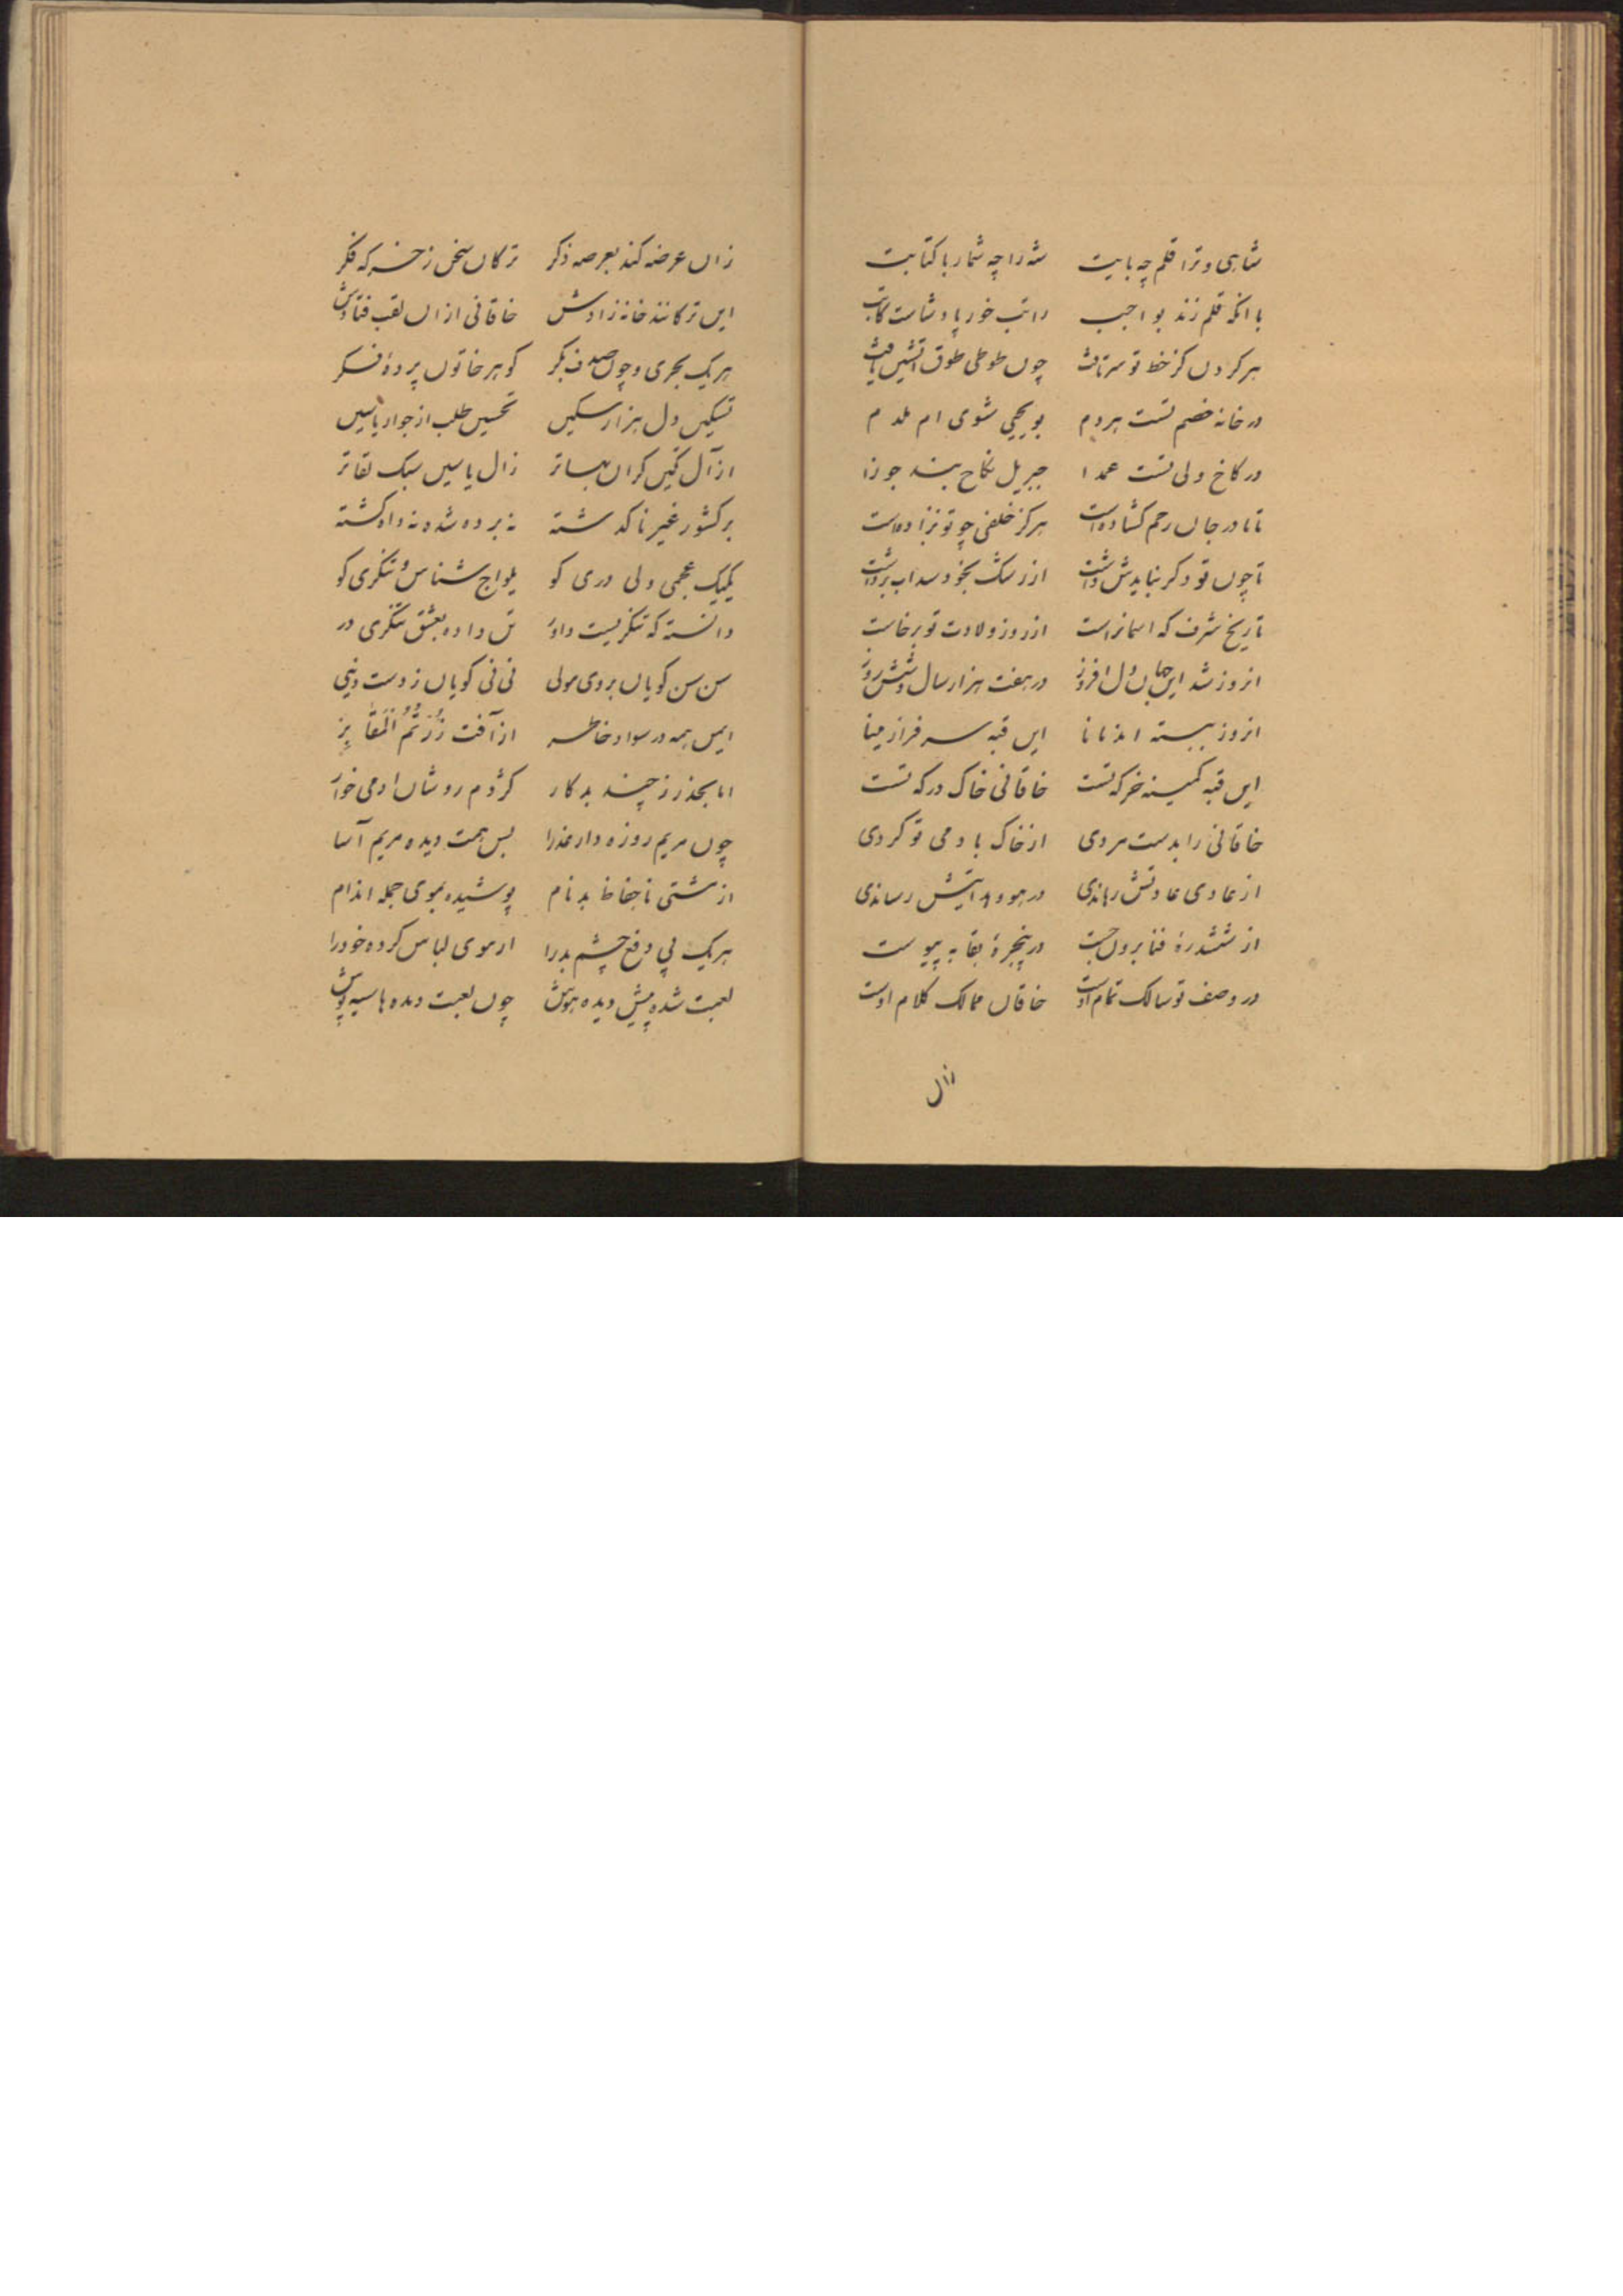 شاهی و ترا قلم چه بایت شه را چه شمار با کتابت
با انکه قلم زند بواجب راتب خور پادشاست کاتب
هر کردن کز خط تو سرتافت چون طوطی طوق اتشین یافت
در خانه خصم تست هردم بو یحیی شوی ام ملدم
در کاخ ولی تست عمدا جبریل نکاح بند جوزا
تا نادر جان رحم کشاده است هرکز خلفی چو تو نزاده است
تا چون تو دکر نبایدش داشت از رشک بخود سداب برداشت
تاریخ شرف که اسمانراست از روز ولادت تو برخاست
انروز شد این جهان دل افروز در هفت هزار سال و شش روز
انروز ببسته اند نانا این قبه سرفراز مینا
این قبه کمینه خرکه تست خاقانی خاک درکه تست
خاقانی را بدست مردی از خاک بادمی تو کردی
از عادی عادتش رهاندی در هود هدایتش رساندی
از ششدرهٔ فنا برون جست در پنجرهٔ بقا به پیوست
در وصف تو سالک تمام اوست خاقان ممالک کلام اوست
ازان
زان عرضه کند بعرصه ذکر ترکان سخن ز خرکه فکر
این ترکانند خانه زادش خاقانی ازان لقب فتادش
هریک بحری و چون صدف بکر کوهر خاتون پردهٔ فکر
تسکین دل هزار مسکین تحسین طلب از جوار یاسین
از آل تکین کران بهاتر زال یاسین سبک لقاتر
بر کشور غیر ناکدشته نه برده شده نه داه کشته
یکیک عجمی ولی دری کو یلواج شناس و تنکری کو
دانسته که تنکریست داور تن داده بعشق تنکری در
سن سن کویان بروی مولی نی نی کویان ز دست دنیی
ایمن همه در سواد خاطر از آفت زُرْتُمُ الْمَقابِر
اما بحذر ز چند بدکار کژدم روشان ادمی خوار
چون مریم روزه دار عذرا بس همت دیده مریم آسا
از مشتی ناحفاظ بدنام پوشیده بموی جمله اندام
هریک پی دفع چشم بدرا از موی لباس کرده خودرا
لعبت شده پیش دیده هوش چون لعبت دیده ها سیه پوش